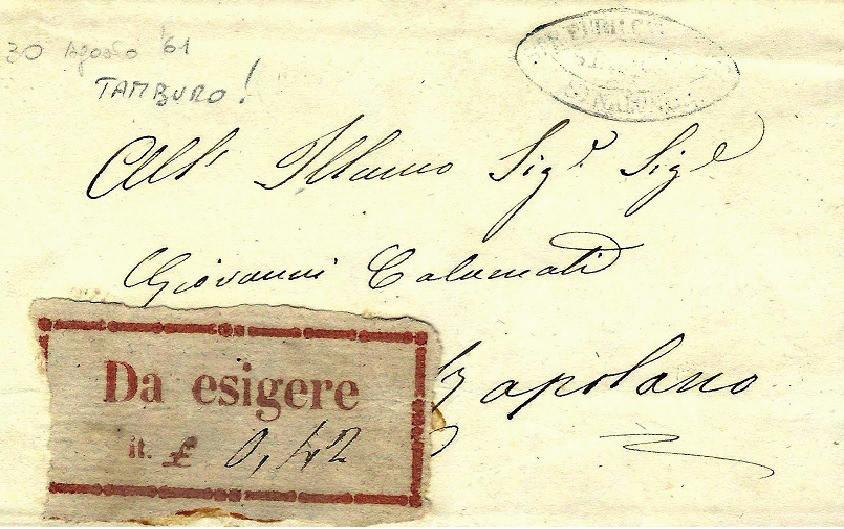 30 Agosto '61
TAMBURO!
All' Illmo Sigr Sigr
Giovanni Calamati
Rapolano
Da esigere
it. £ 0,42